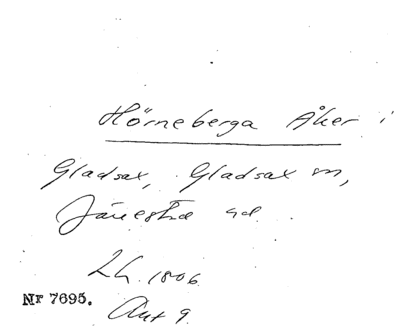 Hörneberga Åker i
Gladsax, Gladsax sn,
Järrestad hd.
LH. 1806
Nr 7695.
Akt 9.